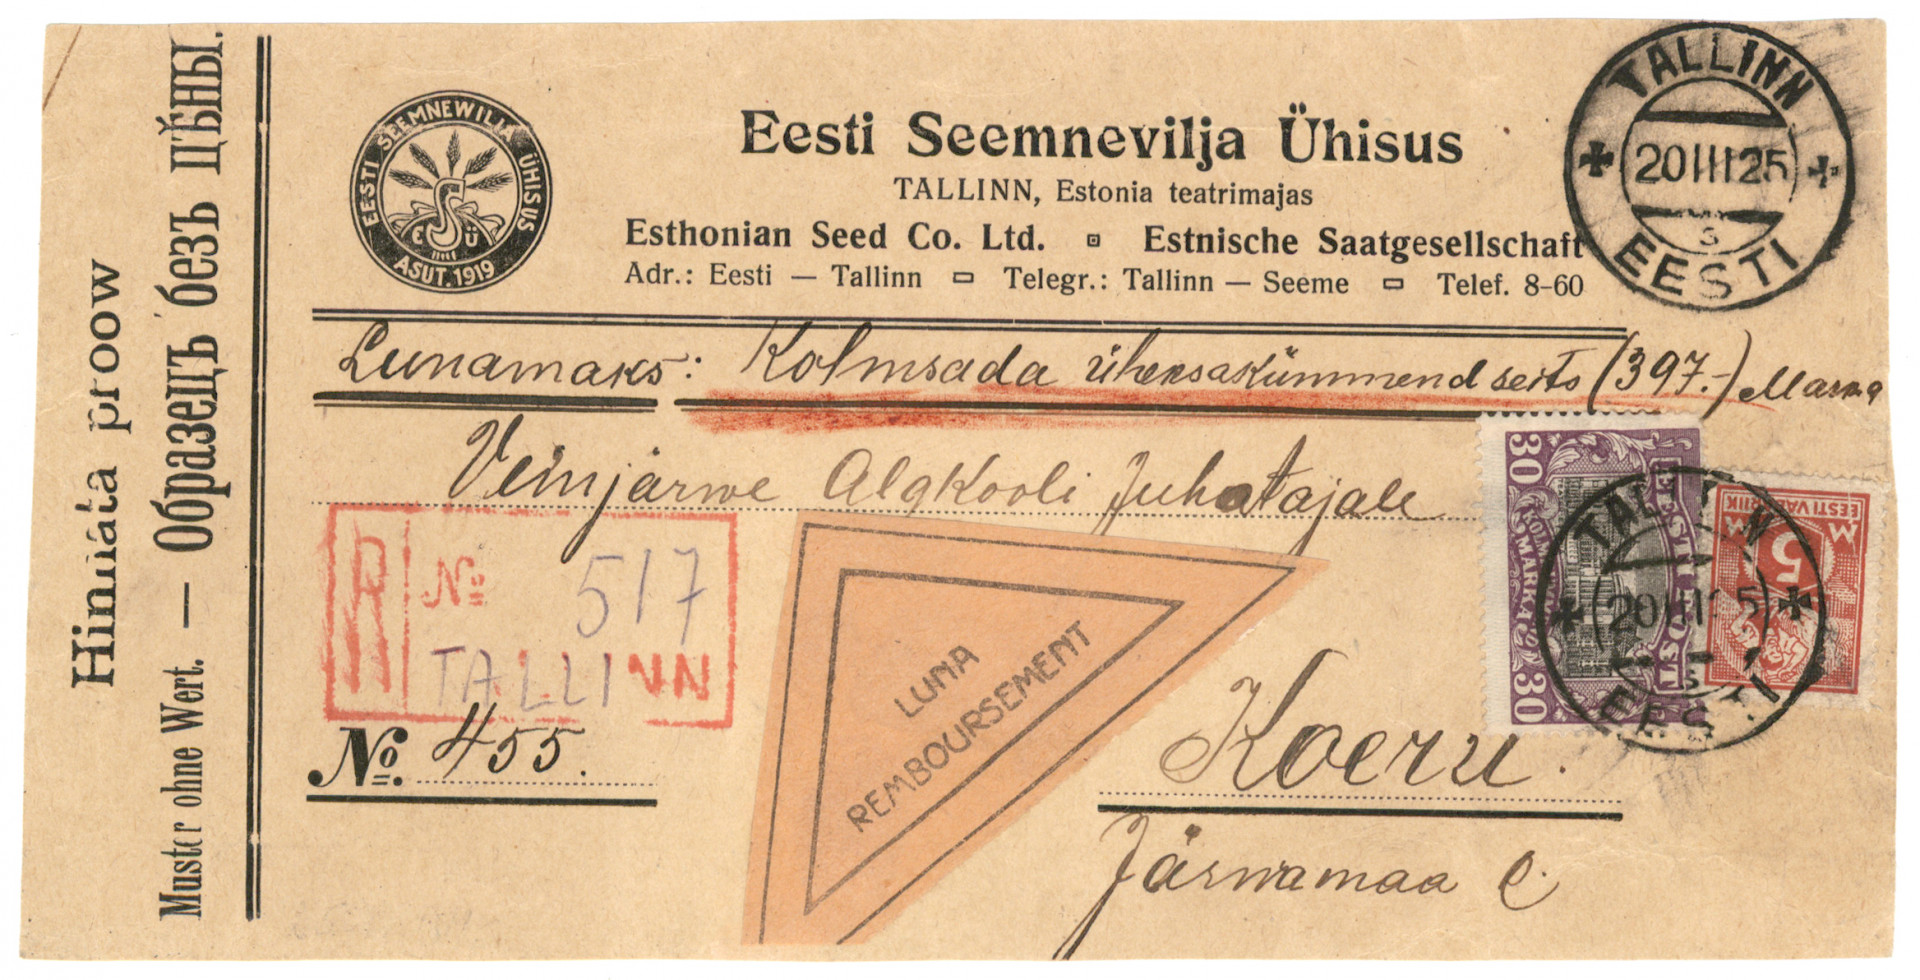 Hinnata proow
Muster ohne Wert. — Образецъ безъ цѣны.
EESTI SEEMNEWILJA ÜHISUS
E S Ü
ASUT. 1919
Eesti Seemnevilja Ühisus
TALLINN, Estonia teatrimajas
Esthonian Seed Co. Ltd. Estnische Saatgesellschaft
Adr.: Eesti — Tallinn Telegr.: Tallinn — Seeme Telef. 8-60
TALLINN
20 III 25
s
EESTI
Lunamaks: Kolmsada üheksakümmend seits (397.-) Marka
Veinjärwe Algkooli Juhatajale
R № 517
TALLINN
№. 455.
LUNA
REMBOURSEMENT
30 30
EESTI POST
KOLMKÜMMEND MARKA
EESTI VABARIIK
5 M
TALLINN
20 III 25
s
EESTI
Koeru.
Järwamaa